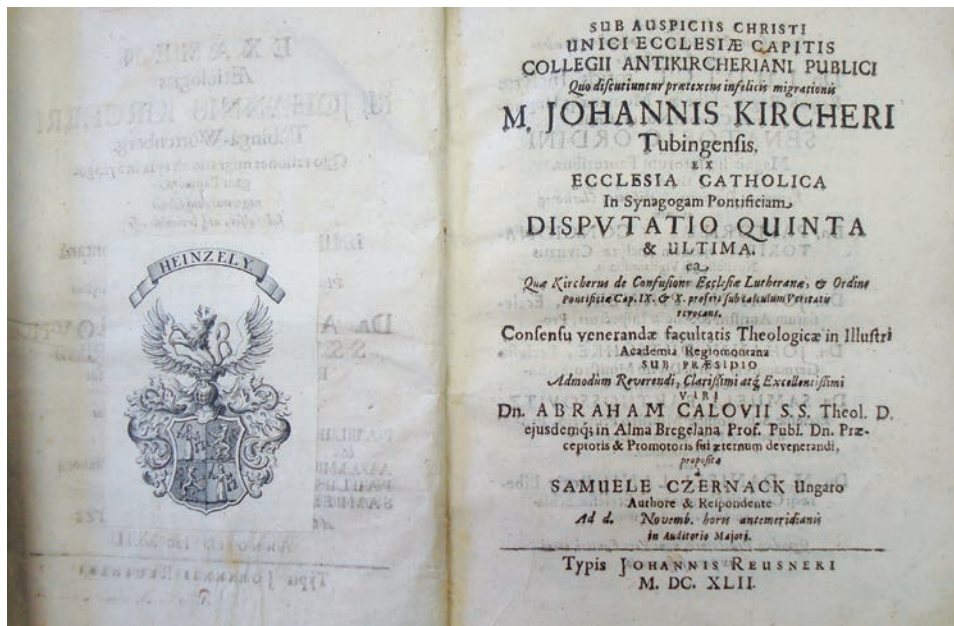 HEINZELY.
SUB AUSPICIIS CHRISTI
UNICI ECCLESIÆ CAPITIS
COLLEGII ANTIKIRCHERIANI PUBLICI
Quo discutiuntur prætextus infelicis migrationis
M. JOHANNIS KIRCHERI
Tubingensis,
EX
ECCLESIA CATHOLICA
In Synagogam Pontificiam
DISPVTATIO QUINTA
& ULTIMA,
ea
Quæ Kircherus de Confusione Ecclesiæ Lutheranæ, & Ordine
Pontificiæ Cap. IX. & X. profert sub calculum Veritatis
revocans.
Consensu venerandæ facultatis Theologicæ in Illustri
Academia Regiomontana
SUB PRÆSIDIO
Admodum Reverendi, Clarissimi atq; Excellentissimi
VIRI
Dn. ABRAHAM CALOVII S. S. Theol. D.
ejusdemq; in Alma Bregelana Prof. Publ. Dn. Præ-
ceptoris & Promotoris sui æternum devenerandi,
proposita
à
SAMUELE CZERNACK Ungaro
Authore & Respondente
Ad d. Novemb. horis antemeridianis
in Auditorio Majori.
Typis JOHANNIS REUSNERI
M. DC. XLII.